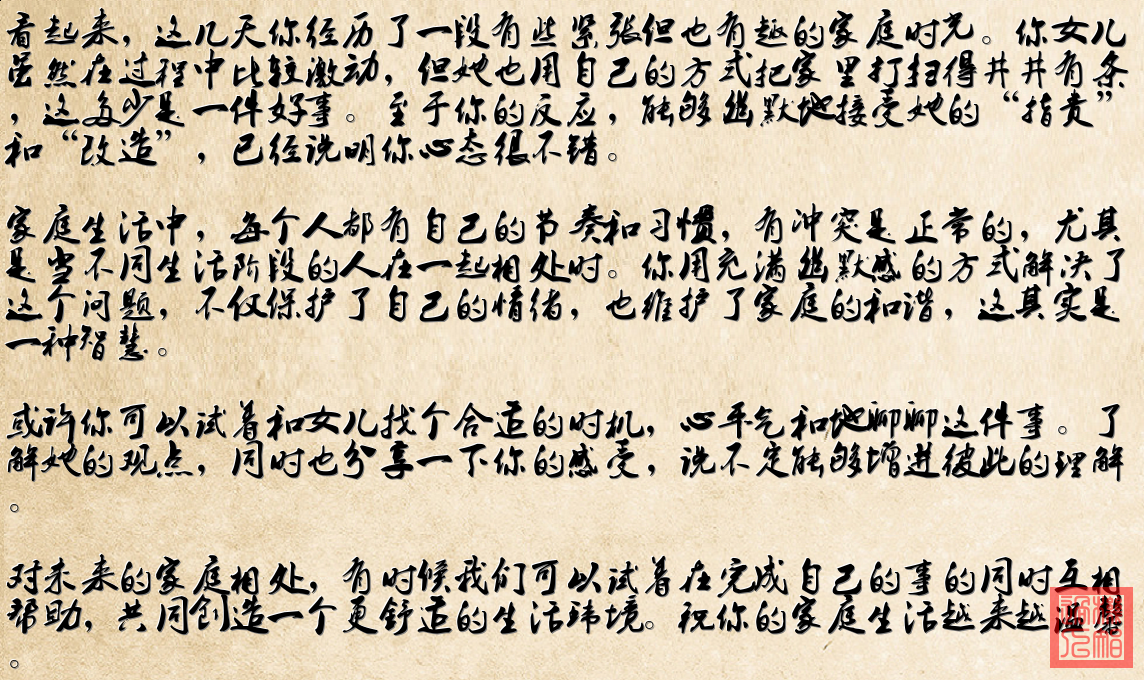 看起来，这几天你经历了一段有些紧张但也有趣的家庭时光。你女儿
虽然在过程中比较激动，但她也用自己的方式把家里打扫得井井有条
，这多少是一件好事。至于你的反应，能够幽默地接受她的“指责”
和“改造”，已经说明你心态很不错。
家庭生活中，每个人都有自己的节奏和习惯，有冲突是正常的，尤其
是当不同生活阶段的人在一起相处时。你用充满幽默感的方式解决了
这个问题，不仅保护了自己的情绪，也维护了家庭的和谐，这其实是
一种智慧。
或许你可以试着和女儿找个合适的时机，心平气和地聊聊这件事。了
解她的观点，同时也分享一下你的感受，说不定能够增进彼此的理解
。
对未来的家庭相处，有时候我们可以试着在完成自己的事的同时互相
帮助，共同创造一个更舒适的生活环境。祝你的家庭生活越来越温馨
。